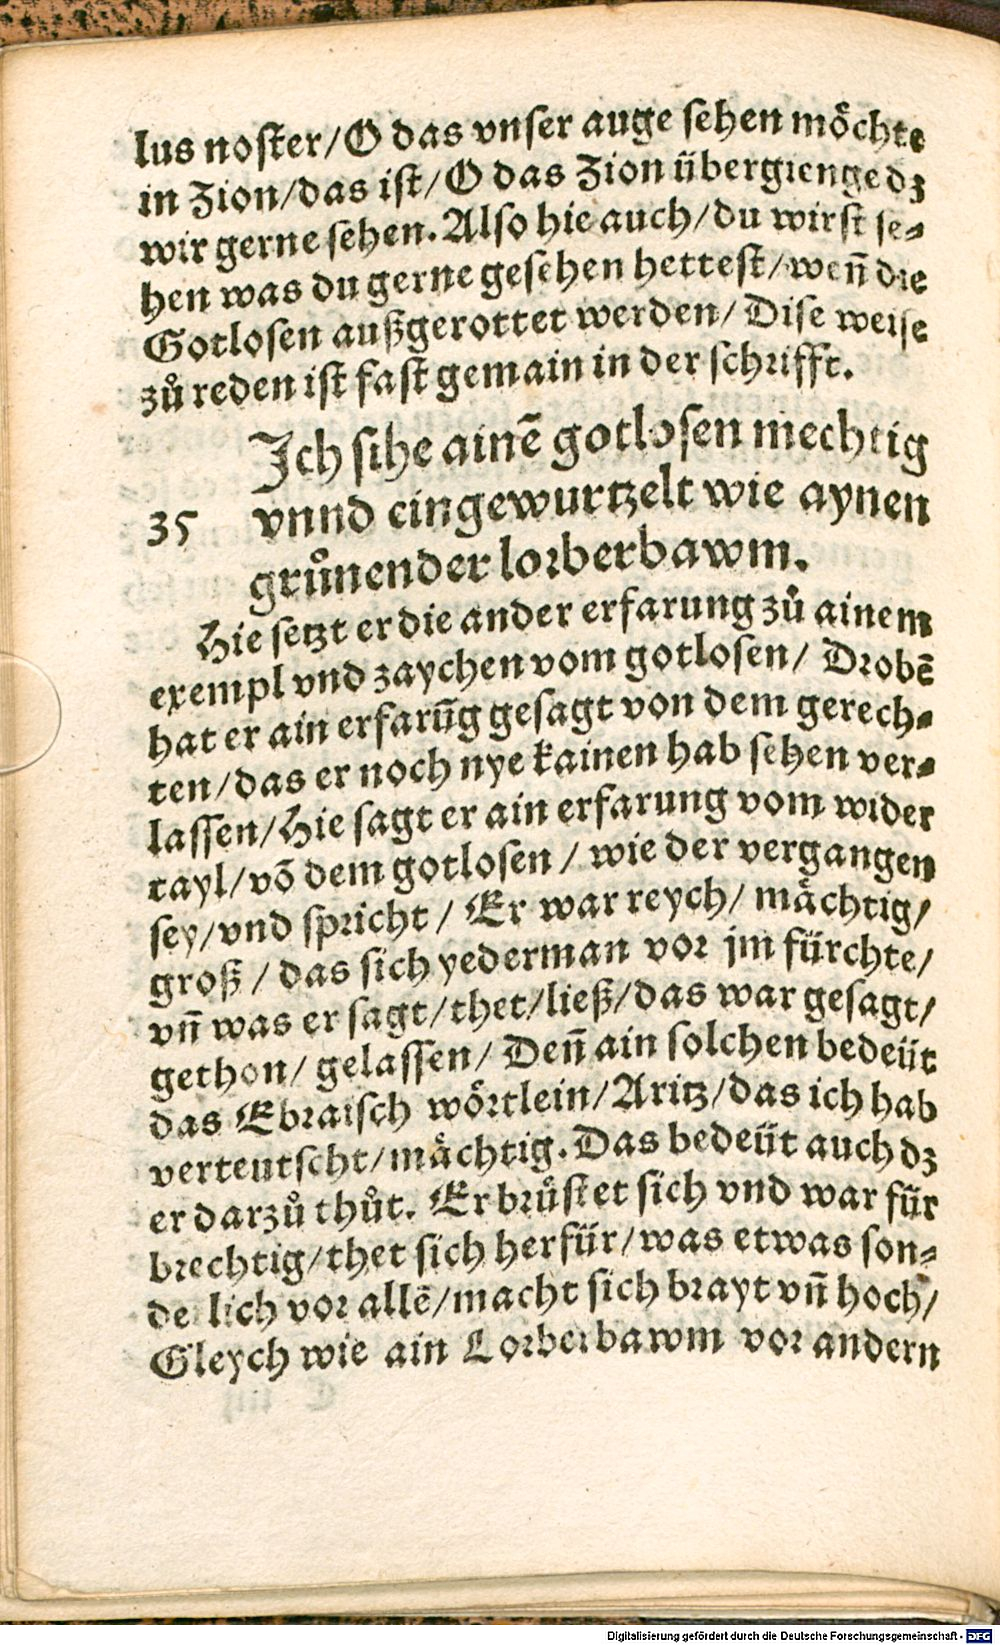 lus noster/ O das vnser auge sehen möchte
in Zion/ das ist/ O das Zion übergienge dz
wir gerne sehen. Also hie auch/ du wirst se⸗
hen was du gerne gesehen hettest/ weñ die
Gotlosen außgerottet werden/ Dise weise
zů reden ist fast gemain in der schrifft.
Ich sihe ainẽ gotlosen mechtig
35 vnnd eingewurtzelt wie aynen
grůnender lorberbawm.
Hie setzt er die ander erfarung zů ainem
exempl vnd zaychen vom gotlosen/ Drobẽ
hat er ain erfarũg gesagt von dem gerech⸗
ten/ das er noch nye kainen hab sehen ver⸗
lassen/ Hie sagt er ain erfarung vom wider
tayl/ võ dem gotlosen / wie der vergangen
sey/ vnd spricht / Er war reych/ mächtig/
groß / das sich yederman vor jm fürchte/
vñ was er sagt/ thet/ ließ/ das war gesagt/
gethon/ gelassen/ Deñ ain solchen bedeüt
das Ebraisch wörtlein/ Aritz/ das ich hab
verteutscht/ mächtig. Das bedeüt auch dz
er darzů thůt. Er brůstet sich vnd war für
brechtig/ thet sich herfür/ was etwas son⸗
de lich vor allẽ/ macht sich brayt vñ hoch/
Gleych wie ain Lorberbawm vor andern
Digitalisierung gefördert durch die Deutsche Forschungsgemeinschaft - DFG